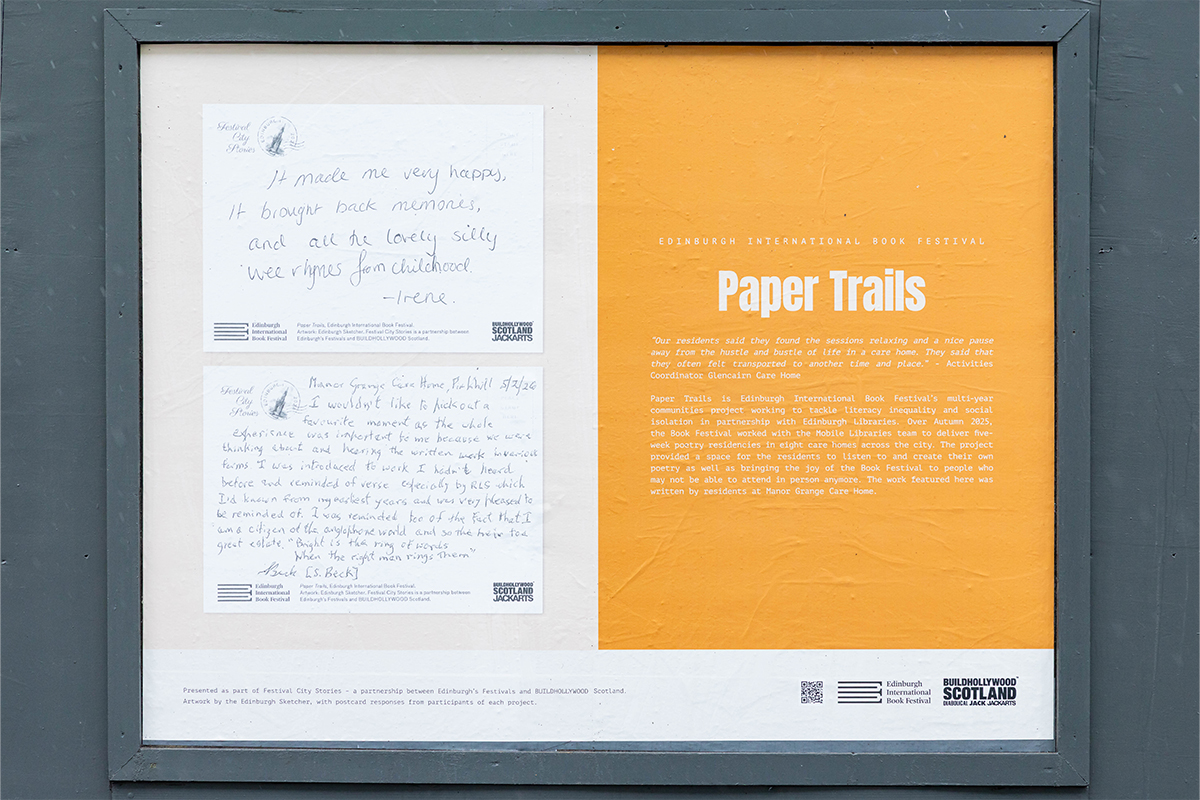 Festival
City
Stories
It made me very happy,
It brought back memories,
and all the lovely silly
wee rhymes from childhood.
-Irene.
Edinburgh
International
Book Festival
Paper Trails, Edinburgh International Book Festival.
Artwork: Edinburgh Sketcher, Festival City Stories is a partnership between
Edinburgh's Festivals and BUILDHOLLYWOOD Scotland.
BUILDHOLLYWOOD
SCOTLAND
JACKARTS
Festival
City
Stories
Manor Grange Care Home, Pinkhill 5/2/26
I wouldn't like to pick out a
favourite moment as the whole
experience was important to me because we were
thinking about and hearing the written work in various
forms I was introduced to work I hadn't heard
before and reminded of verse especially by RLS which
I'd known from my earliest years and was very pleased to
be reminded of. I was reminded too of the fact that I
am a citizen of the anglophone world and so the heir to a
great estate. "Bright is the ring of words
When the right man rings them"
SBeck [S. Beck]
Edinburgh
International
Book Festival
Paper Trails, Edinburgh International Book Festival.
Artwork: Edinburgh Sketcher, Festival City Stories is a partnership between
Edinburgh's Festivals and BUILDHOLLYWOOD Scotland.
BUILDHOLLYWOOD
SCOTLAND
JACKARTS
EDINBURGH INTERNATIONAL BOOK FESTIVAL
Paper Trails
"Our residents said they found the sessions relaxing and a nice pause
away from the hustle and bustle of life in a care home. They said that
they often felt transported to another time and place." - Activities
Coordinator Glencairn Care Home
Paper Trails is Edinburgh International Book Festival's multi-year
communities project working to tackle literacy inequality and social
isolation in partnership with Edinburgh Libraries. Over Autumn 2025,
the Book Festival worked with the Mobile Libraries team to deliver five-
week poetry residencies in eight care homes across the city. The project
provided a space for the residents to listen to and create their own
poetry as well as bringing the joy of the Book Festival to people who
may not be able to attend in person anymore. The work featured here was
written by residents at Manor Grange Care Home.
Presented as part of Festival City Stories - a partnership between Edinburgh's Festivals and BUILDHOLLYWOOD Scotland.
Artwork by the Edinburgh Sketcher, with postcard responses from participants of each project.
Edinburgh
International
Book Festival
BUILDHOLLYWOOD
SCOTLAND
DIABOLICAL JACK JACKARTS